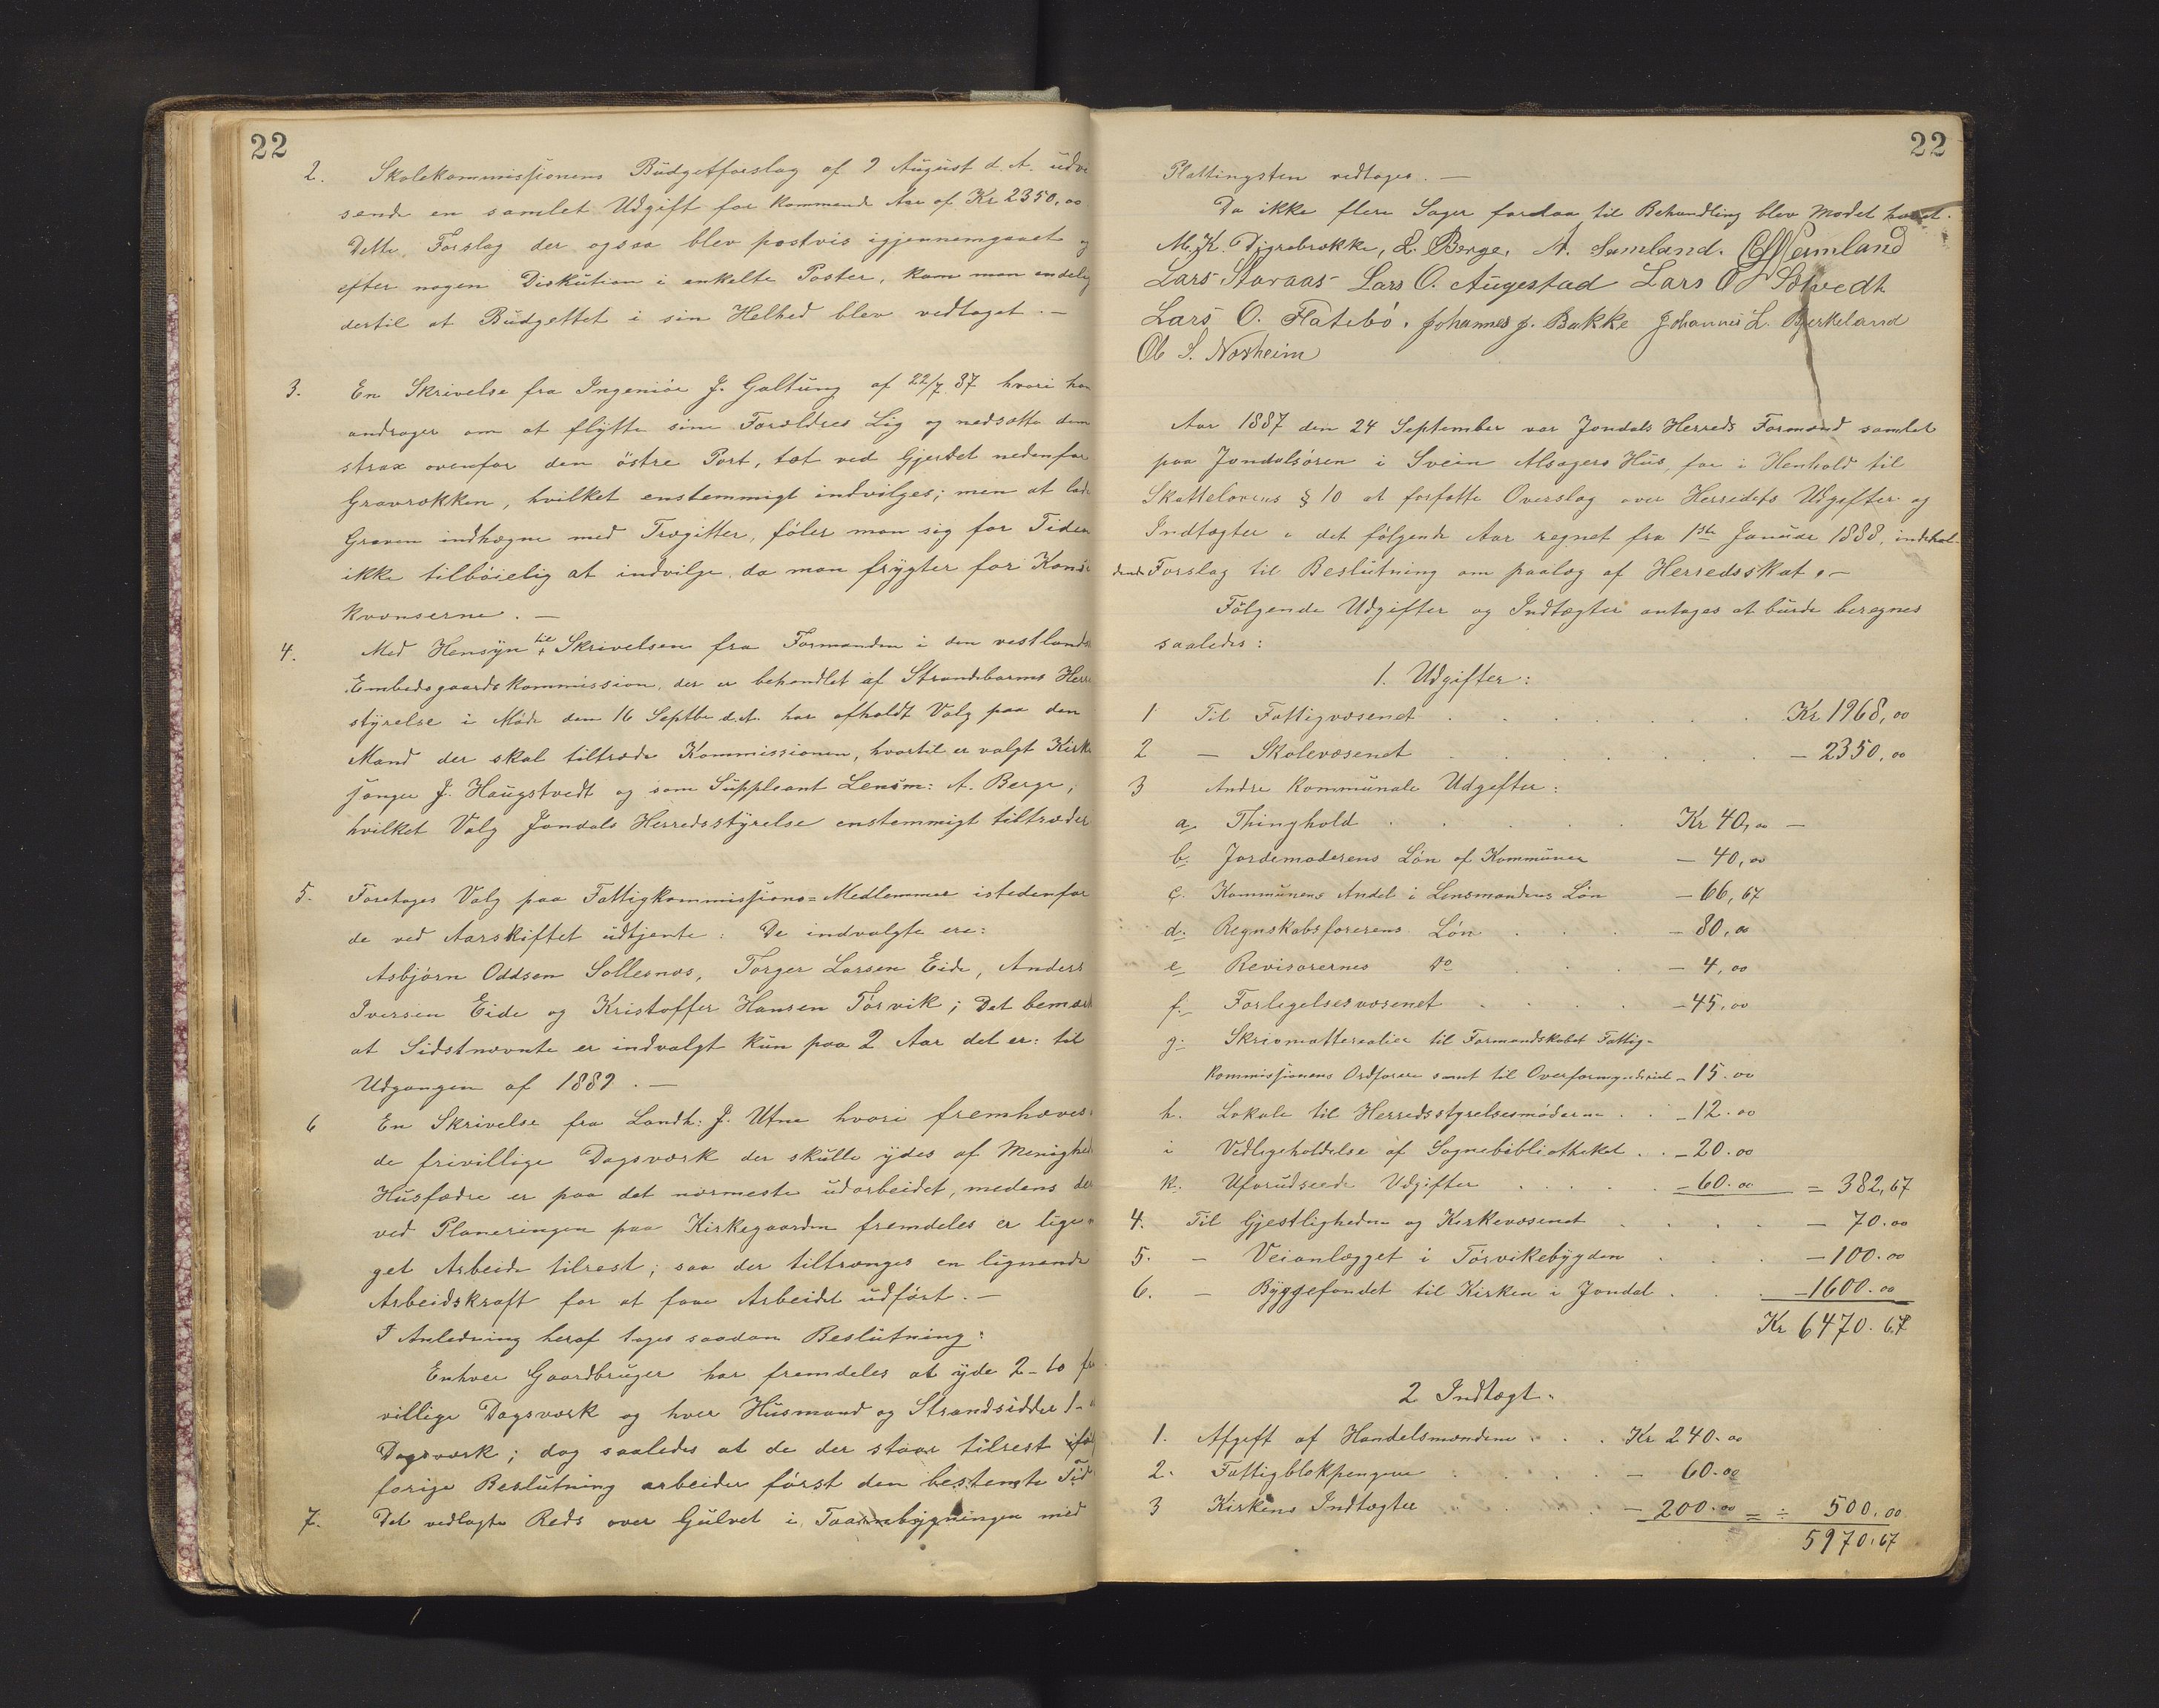 22
2. Skolekommissionens Büdgetforslag af 9 August d. A. üdvi
sende en samlet Udgift for kommende Aar af Kr 2350,00
Dette Forslag der ogsaa blev postvis igjennemgaaet og
efter nogen Diskütion i enkelte Poster, kom man endelig
dertil at Büdgettet i sin Helhed blev vedtaget. —
3. En Skrivelse fra Ingeniör J. Galtüng af 22/7 87 hvori han
andrager om at flÿtte sine Forældres Lig og nedsætte dem
strax ovenfor den östre Port, tæt ved Gjerdet nedenfor
Gravrækken, hvilket enstemmigt indvilges; men at lade
Graven indhegne med Trægitter, föler man sig for Tiden
ikke tilböielig at indvilge, da man frÿgter for Konse
kvenserne. —
4. Med Hensÿn til Skrivelsen fra Formanden i den vestlandske
Embedsgaardskommission, der er behandlet af Strandebarms Herre
stÿrelse i Möde den 16 Septbr d.A. har afholdt Valg paa den
Mand der skal tiltræde Kommissionen, hvortil er valgt Kirke
sanger J. Haügstvedt og som Süppleant Lensm: A. Berge,
hvilket Valg Jondals Herredsstÿrelse enstemmigt tiltræder
5. Foretages Valg paa Fattigkommissions=Medlemmer istedenfor
de ved Aarskiftet üdtjente: De indvalgte ere:
Asbjörn Oddsen Sollesnæs, Torger Larsen Eide, Anders
Iversen Eide og Kristoffer Hansen Törvik; Det bemærk
at Sidstnævnte er indvalgt kün paa 2 Aar det er: til
Udgangen af 1889. —
6 En Skrivelse fra Landh: J. Utne hvori fremhæves
de frivillige Dagsværk der skülle ÿdes af Menighed
Hüsfædre er paa det nærmeste üdarbeidet, medens der
ved Planeringen paa Kirkegaarden fremdeles er lige
get Arbeide tilrest; saa der tiltrænges en lignende
Arbeidskraft for at faae Arbeidet üdfört. —
I Anledning heraf tages saadan Beslütning:
Enhver Gaardbrüger har fremdeles at ÿde 2 - to fri
villige Dagsværk og hver Hüsmand og Strandsidder 1 -
Dagsværk; dog saaledes at de der staar tilrest
forige Beslütning arbeider först den bestemte Tid
7. Det vedlagte Reds over Gülvet i Taarnbÿgningen med
22
Plattingsten vedtages. —
Da ikke flere Sager forelaa til Behandling blev Mödet hævet.
M. K. Digrebrække, L. Berge, A. Samland. Samland
Lars Stavaas Lars O. Augestad Lars O Solvedt
Lars O. Flatebö. Johannes J. Bakke Johannes L. Birkeland
Ole S. Norheim
Aar 1887 den 24 September var Jondals Herreds Formænd samlet
paa Jondalsören i Svein Alsagers Hüs, for i Henhold til
Skattelovens § 10 at forfatte Overslag over Herredets Udgifter og
Indtægter i det fölgende Aar regnet fra 1ste Januar 1888, indehol-
dende Forslag til Beslütning om paalæg af Herredsskat. —
Fölgende Udgifter og Indtægter antages at bürde beregnes
saaledes:
1. Udgifter:
1 Til Fattigvæsenet . . . . . . Kr 1968,00
2 — Skolevæsenet . . . . . . — 2350,00
3 Andre Kommünale Udgifter:
a. Thinghold . . . . Kr 40,00 —
b. Jordemoderens Lön af Kommünen — 40,00
c. Kommünens Andel i Lensmandens Lön — 66,67
d. Regnskabsförerens Lön . . . — 80,00
e. Revisorernes Do . . . — 4,00
f. Forligelsesvæsenet . . . . — 45,00
g. Skrivmatterealier til Formandskabet Fattig-
kommissionens Ordförere samt til Overformynderiet — 15.00
h. Lokale til Herredsstyrelsesmöderne . . — 12.00
i Vedligeholdelse af Sognebibliotheket . . — 20.00
k. Uforüdseede Udgifter . . . . — 60.00 = 382,67
4. Til Gjestligheden og Kirkevæsenet . . . . — 70.00
5. — Veianlægget i Törvikebÿgden . . . — 100.00
6. — Bÿggefondet til Kirken i Jondal . . . — 1600.00
Kr 6470.67
2 Indtægt.
1. Afgift af Handelsmændene . . . Kr 240.00
2. Fattigblokpengene . . . . — 60.00
3 Kirkens Indtægter . . . — 200.00 = ÷ 500,00
5970,67